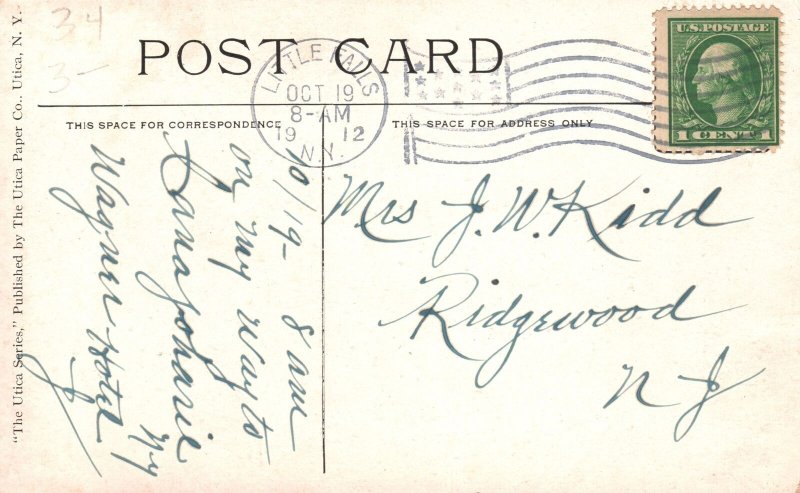 34
3-
POST CARD
LITTLE FALLS
OCT 19
8-AM
19 12
N.Y.
U.S. POSTAGE
1 CENT 1
THIS SPACE FOR CORRESPONDENCE
THIS SPACE FOR ADDRESS ONLY
10/19- 8 am
on my way to
Canajoharie NY
Wagner Hotel
J
Mrs J. W. Kidd
Ridgewood
N J
"The Utica Series," Published by The Utica Paper Co., Utica, N. Y.